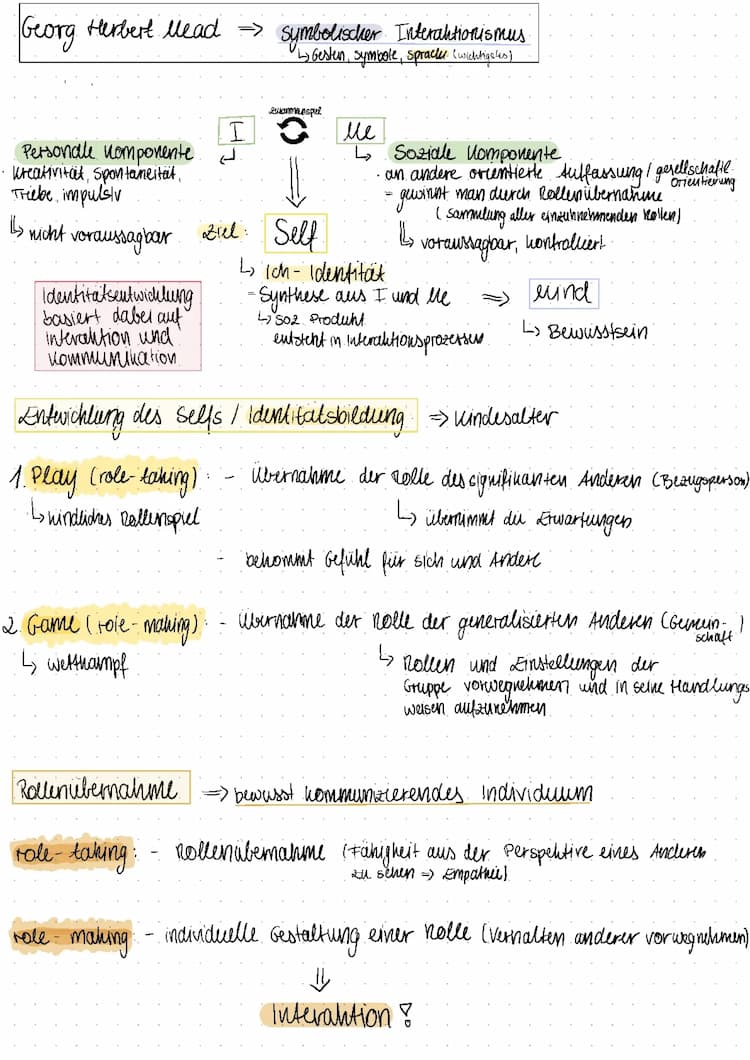 Georg Herbert Mead ⇒ symbolischer Interaktionismus
↳ Gesten, symbole, sprache (wichtigstes)
zusammenspiel
I
Me
Personale Komponente
· Kreativität, Spontaneität,
Triebe, impulsiv
↳ nicht voraussagbar
Soziale Komponente
· an andere orientierte Auffassung / gesellschaftl.
orientierung
= gewinnt man durch Rollenübernahme
(sammlung aller einzunehmenden Rollen)
↳ voraussagbar, kontrolliert
Ziel: Self
↳ Ich-Identität
= Synthese aus I und Me ⇒ mind
↳ soz Produkt
entsteht in Interaktionsprozessen
↳ Bewusstsein
Identitätsentwicklung
basiert dabei auf
Interaktion und
Kommunikation
Entwicklung des Selfs / Identitätsbildung ⇒ Kindesalter
1. Play (role-taking): - Übernahme der Rolle des signifikanten Anderen (Bezugsperson)
↳ kindliches Rollenspiel
↳ übernimmt die Erwartungen
- bekommt Gefühl für sich und Andere
2. Game (role-making): - Übernahme der Rolle der generalisierten Anderen (Gemein-
schaft)
↳ Wettkampf
↳ Rollen und Einstellungen der
Gruppe vorwegnehmen und in seine Handlungs
weisen aufzunehmen
Rollenübernahme ⇒ bewusst kommunizierendes Individuum
role-taking: - Rollenübernahme (Fähigkeit aus der Perspektive eines Anderen
zu sehen ⇒ Empathie)
role-making - individuelle Gestaltung einer Rolle (Verhalten anderer vorwegnehmen)
⇓
Interaktion!